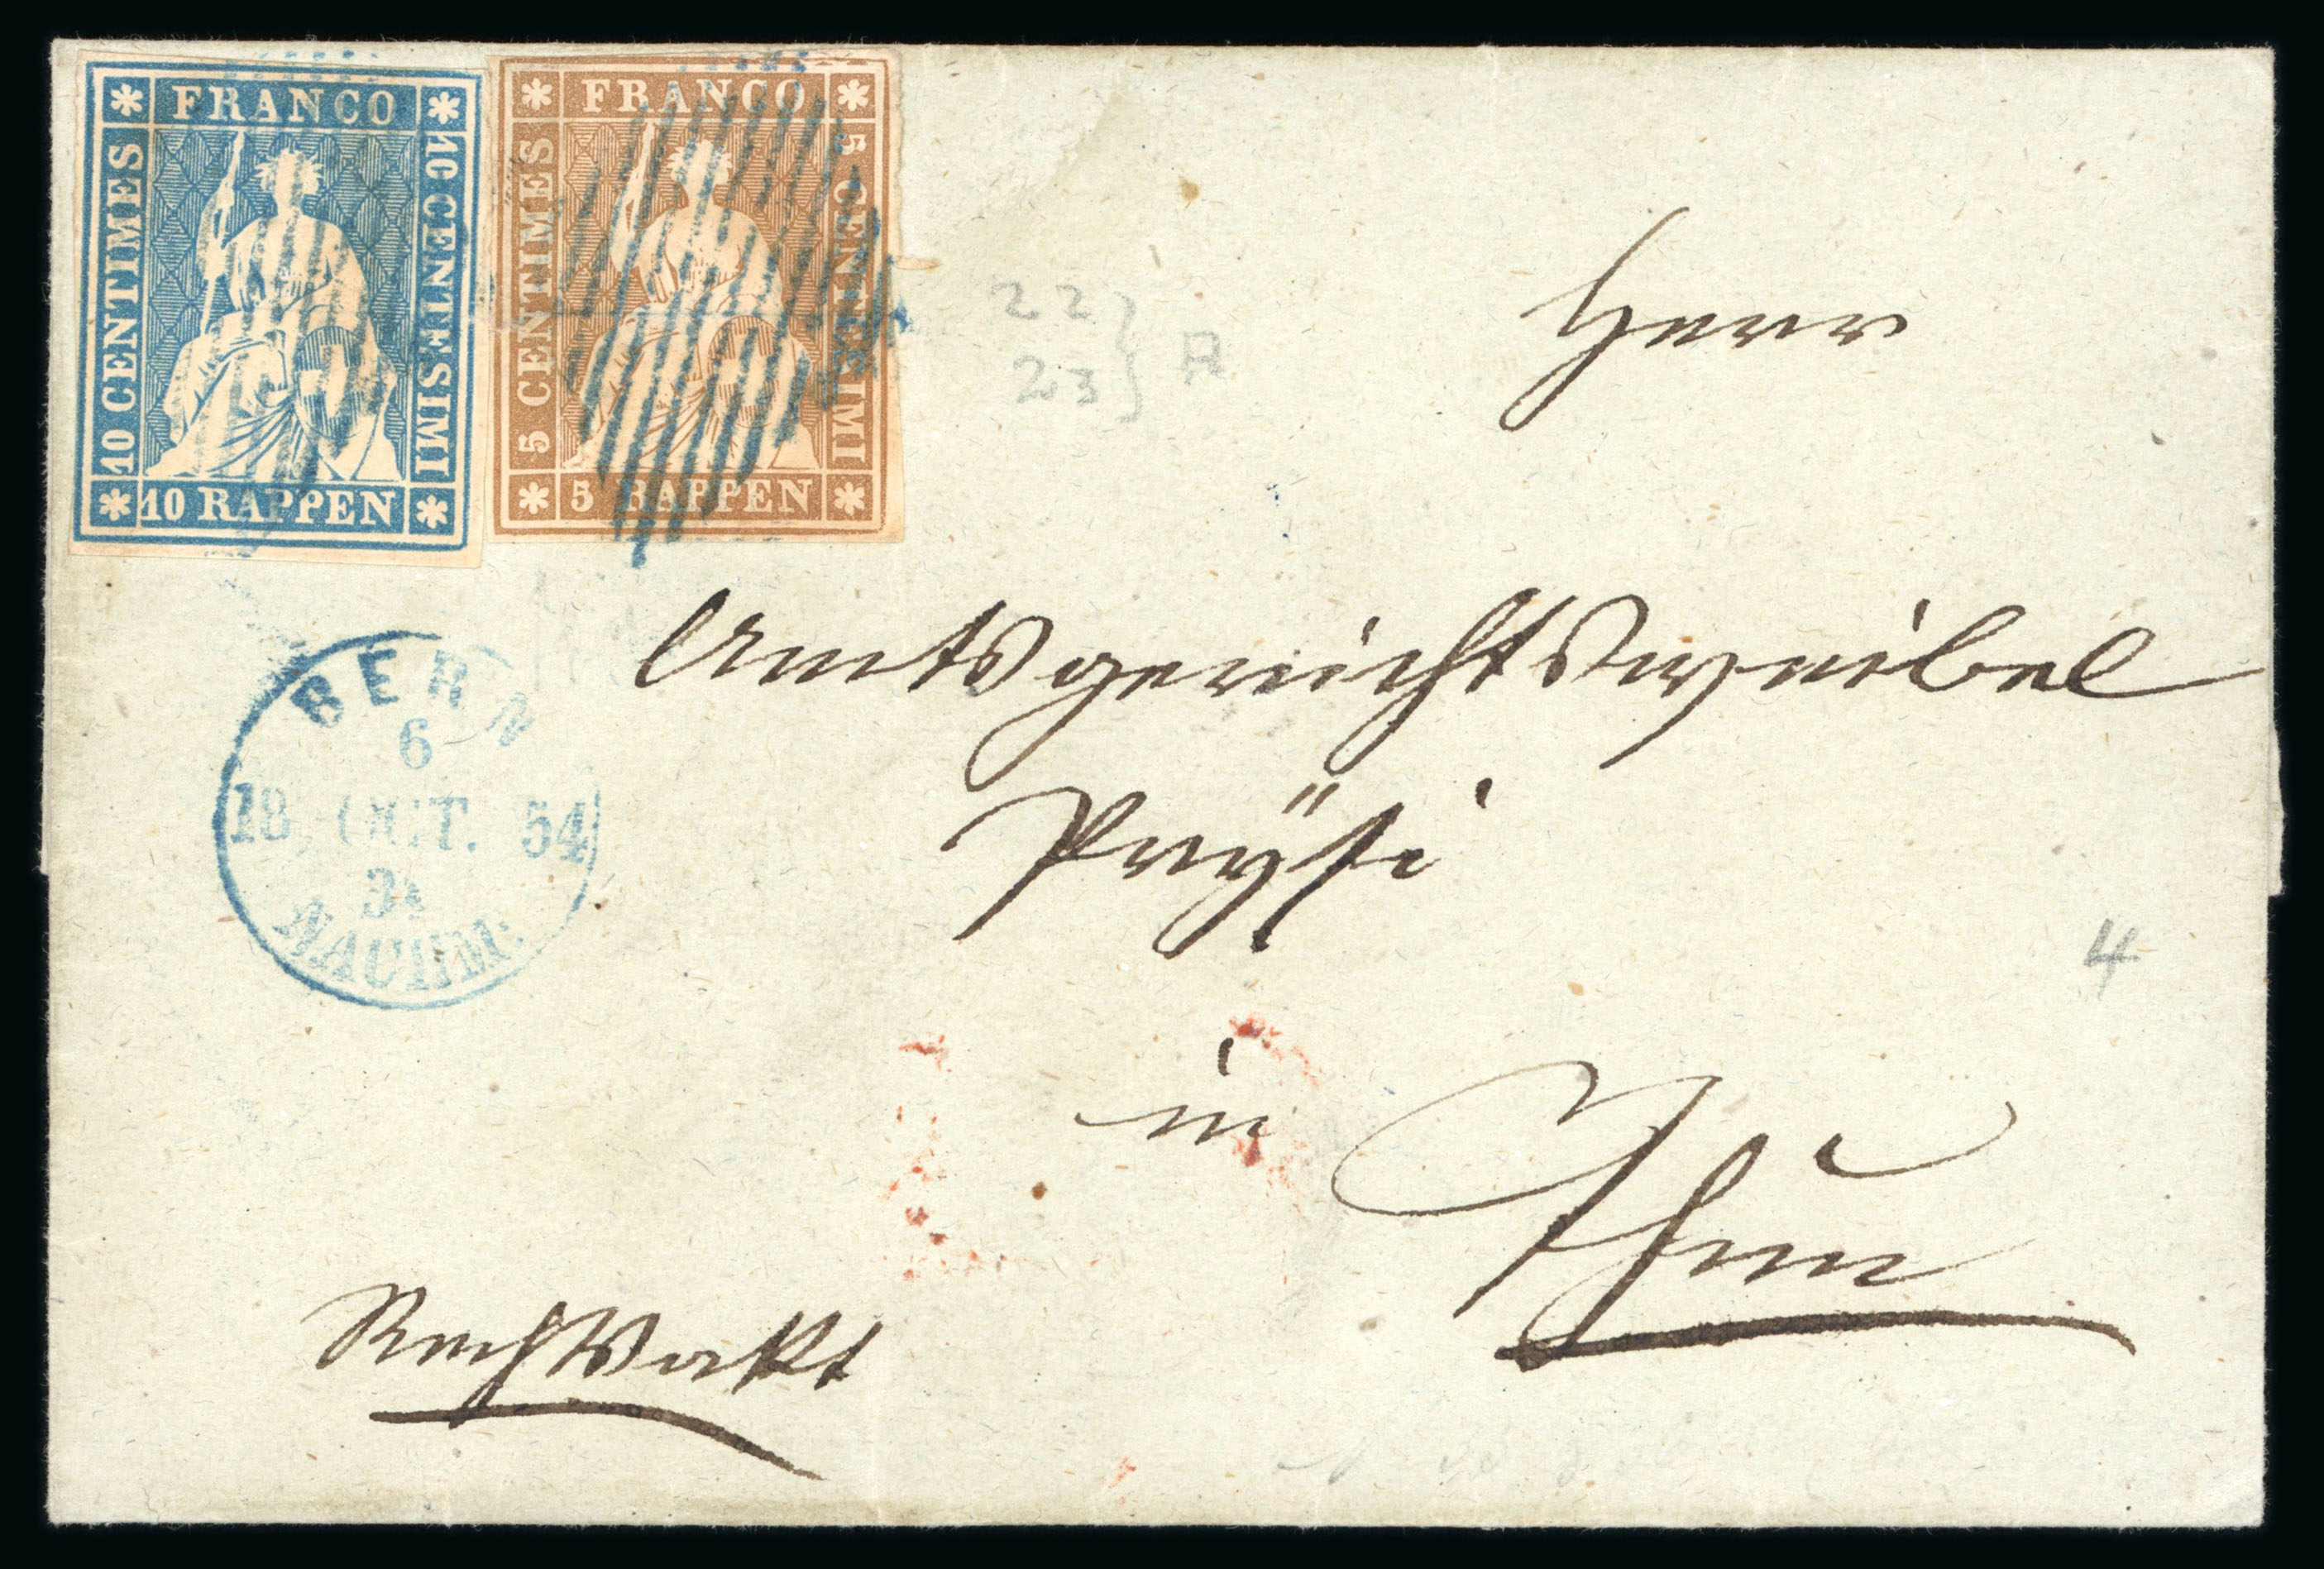 FRANCO
10 CENTIMES
10 CENTESIMI
10 RAPPEN
FRANCO
5 CENTIMES
5 CENTESIMI
5 RAPPEN
22
23 } A
Herr
Amtsgerichtsweibel
BERN
6
18 OCT. 54
NACHM:
4
in
Thun